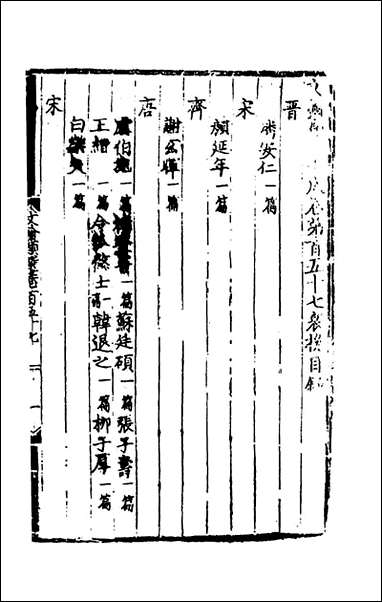 文翰 成卷第百五十七哀挽目錄
晉
潘安仁一篇
宋
顏延年一篇
齊
謝玄暉一篇
唐
虞伯施一篇 一篇 蘇廷碩一篇 張子壽一篇
王縉一篇 令狐 士一篇 韓退之一篇 柳子厚一篇
白樂天一篇
宋
文翰類選卷百五十七 一